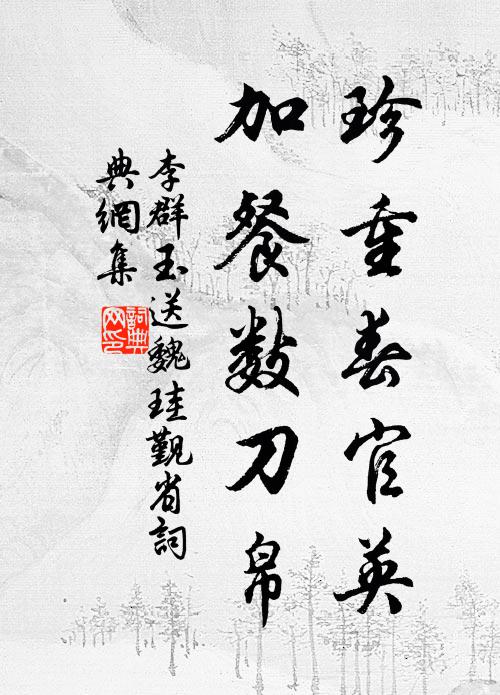 珍重春官英
加餐数刀帛
李群玉送魏珪觐省詞
典網集
詞典網印